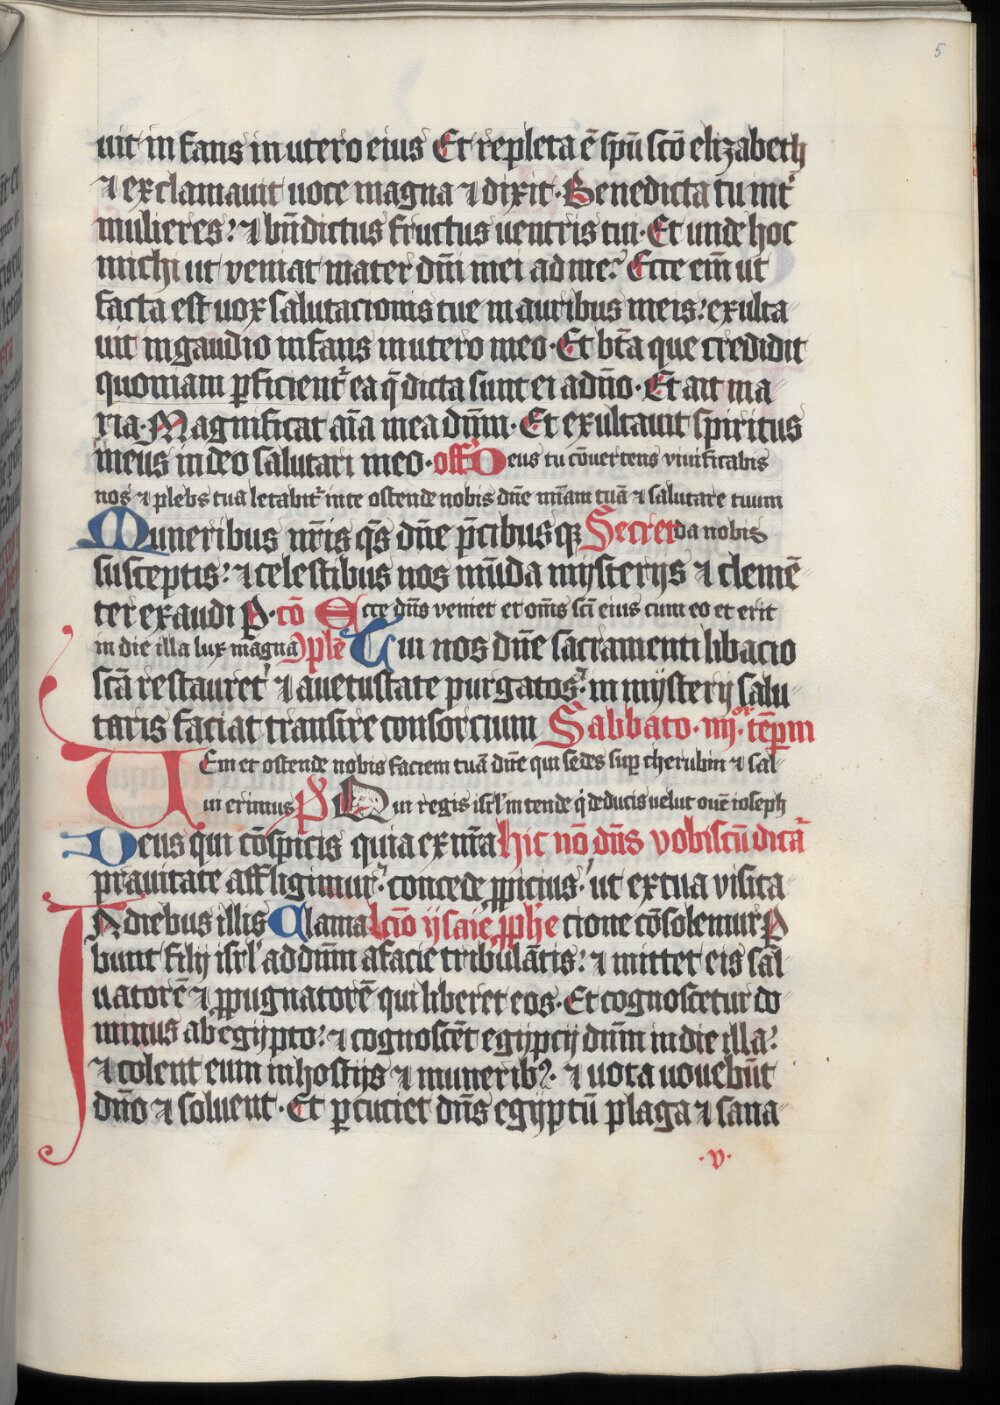 5
uit infans in utero eius Et repleta ē spū scō elizabeth
⁊ exclamauit uoce magna ⁊ dixit· Benedicta tu int̾
mulieres: ⁊ bn̄dictus fructus uentris tui· Et unde hoc
michi ut veniat mater dn̄i mei ad me? Ecce em̄ ut
facta est uox salutacionis tue in auribus meis: exulta
uit in gaudio infans in utero meo· Et bt̄a que credidit
quoniam ꝑficient̾ ea q̄ dicta sunt ei a dn̄o· Et ait ma
ria· Magnificat aīa mea dn̄m· Et exultauit spiritus
meus in deo salutari meo· off̾ Deus tu cōuertens viuificabis
nos ⁊ plebs tua letabit̾ in te ostende nobis dn̄e mīam tuā ⁊ salutare tuum
Muneribus nr̄is qs̄ dn̄e p̄cibusqꝫ Secret da nobis
susceptis: ⁊ celestibus nos mūda mysterijs ⁊ clemē
ter exaudi P· cō Ecce dn̄s veniet et om̄s sc̄i eius cum eo et erit
in die illa lux magna ꝯple Tui nos dn̄e sacramenti libacio
sc̄a restauret ⁊ a uetustate purgatos: in mysterij salu
taris faciat transire consorcium Sabbato· iiij· tēpm
UEni et ostende nobis faciem tuā dn̄e qui sedes suꝑ cherubin ⁊ sal
ui erimus P Qui regis isrl̄ intende q̇ deducis uelut ouē ioseph
Deus qui cōspicis quia ex nr̄a hic nō dn̄s vobiscū dicit̾
prauitate affligimur: concede ꝓpicius· ut ex tua visita
IN diebus illis Clama lc̄io ysaie ꝓphe cione cōsolemur P
bunt filij isrl̄ ad dn̄m a facie tribulātis: ⁊ mittet eis sal
uatorē ⁊ ꝓpugnatorē qui liberet eos· Et cognoscetur do
minus ab egypto: ⁊ cognoscēt egypcij dn̄m in die illa:
⁊ colent eum in hostijs ⁊ munerib⁊· ⁊ uota uouebūt
dn̄o ⁊ soluent· Et ꝑcuciet dn̄s egyptū plaga ⁊ sana
·v·